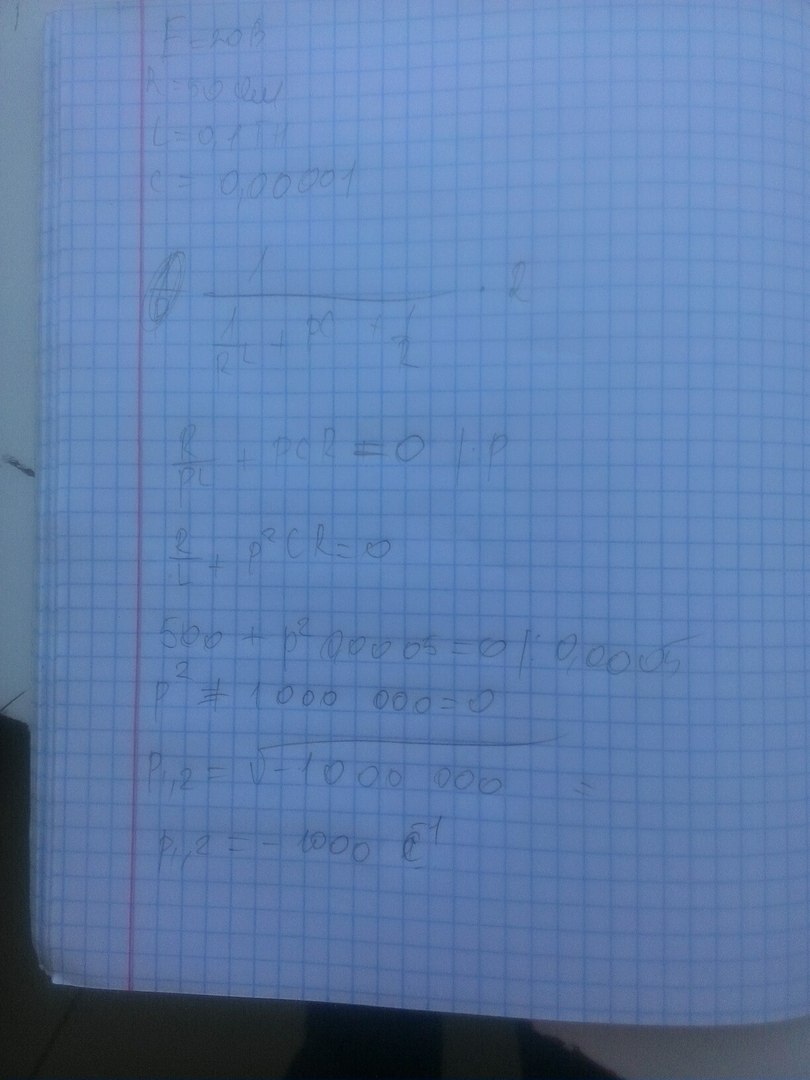 E=20В
R=50 Ом
L=0,1 ГН
C= 0,00001
1
R + pCR = 0 |·P
pL
R + p² CR=0
L
500 + p² 0,0005=0 |: 0,0005
p² + 1000 000=0
P₁,₂ = √-1000 000 =
p₁,₂ = - 1000 c⁻¹